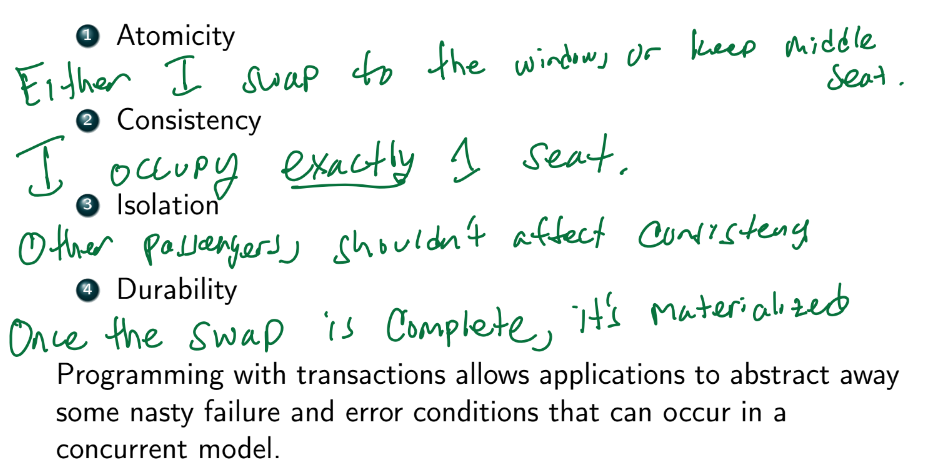 1 Atomicity
Either I swap to the window, or keep middle
seat.
2 Consistency
I occupy exactly 1 seat.
3 Isolation
Other passengers, shouldn't affect consistency
4 Durability
Once the swap is complete, it's materialized
Programming with transactions allows applications to abstract away
some nasty failure and error conditions that can occur in a
concurrent model.